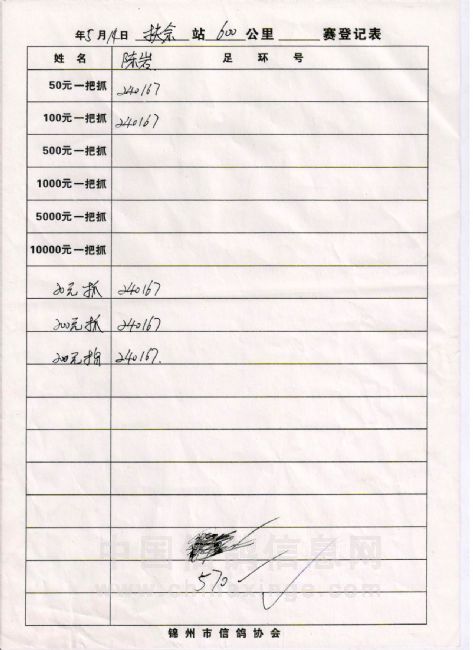 年5月14日 扶余 站 600 公里 赛登记表
姓名 陈岩 足环号
50元一把抓 240167
100元一把抓 240167
500元一把抓
1000元一把抓
5000元一把抓
10000元一把抓
20元抓 240167
200元抓 240167
200元 240167.
中国信鸽信息网
570
www.chinaxinge.com
锦州市信鸽协会